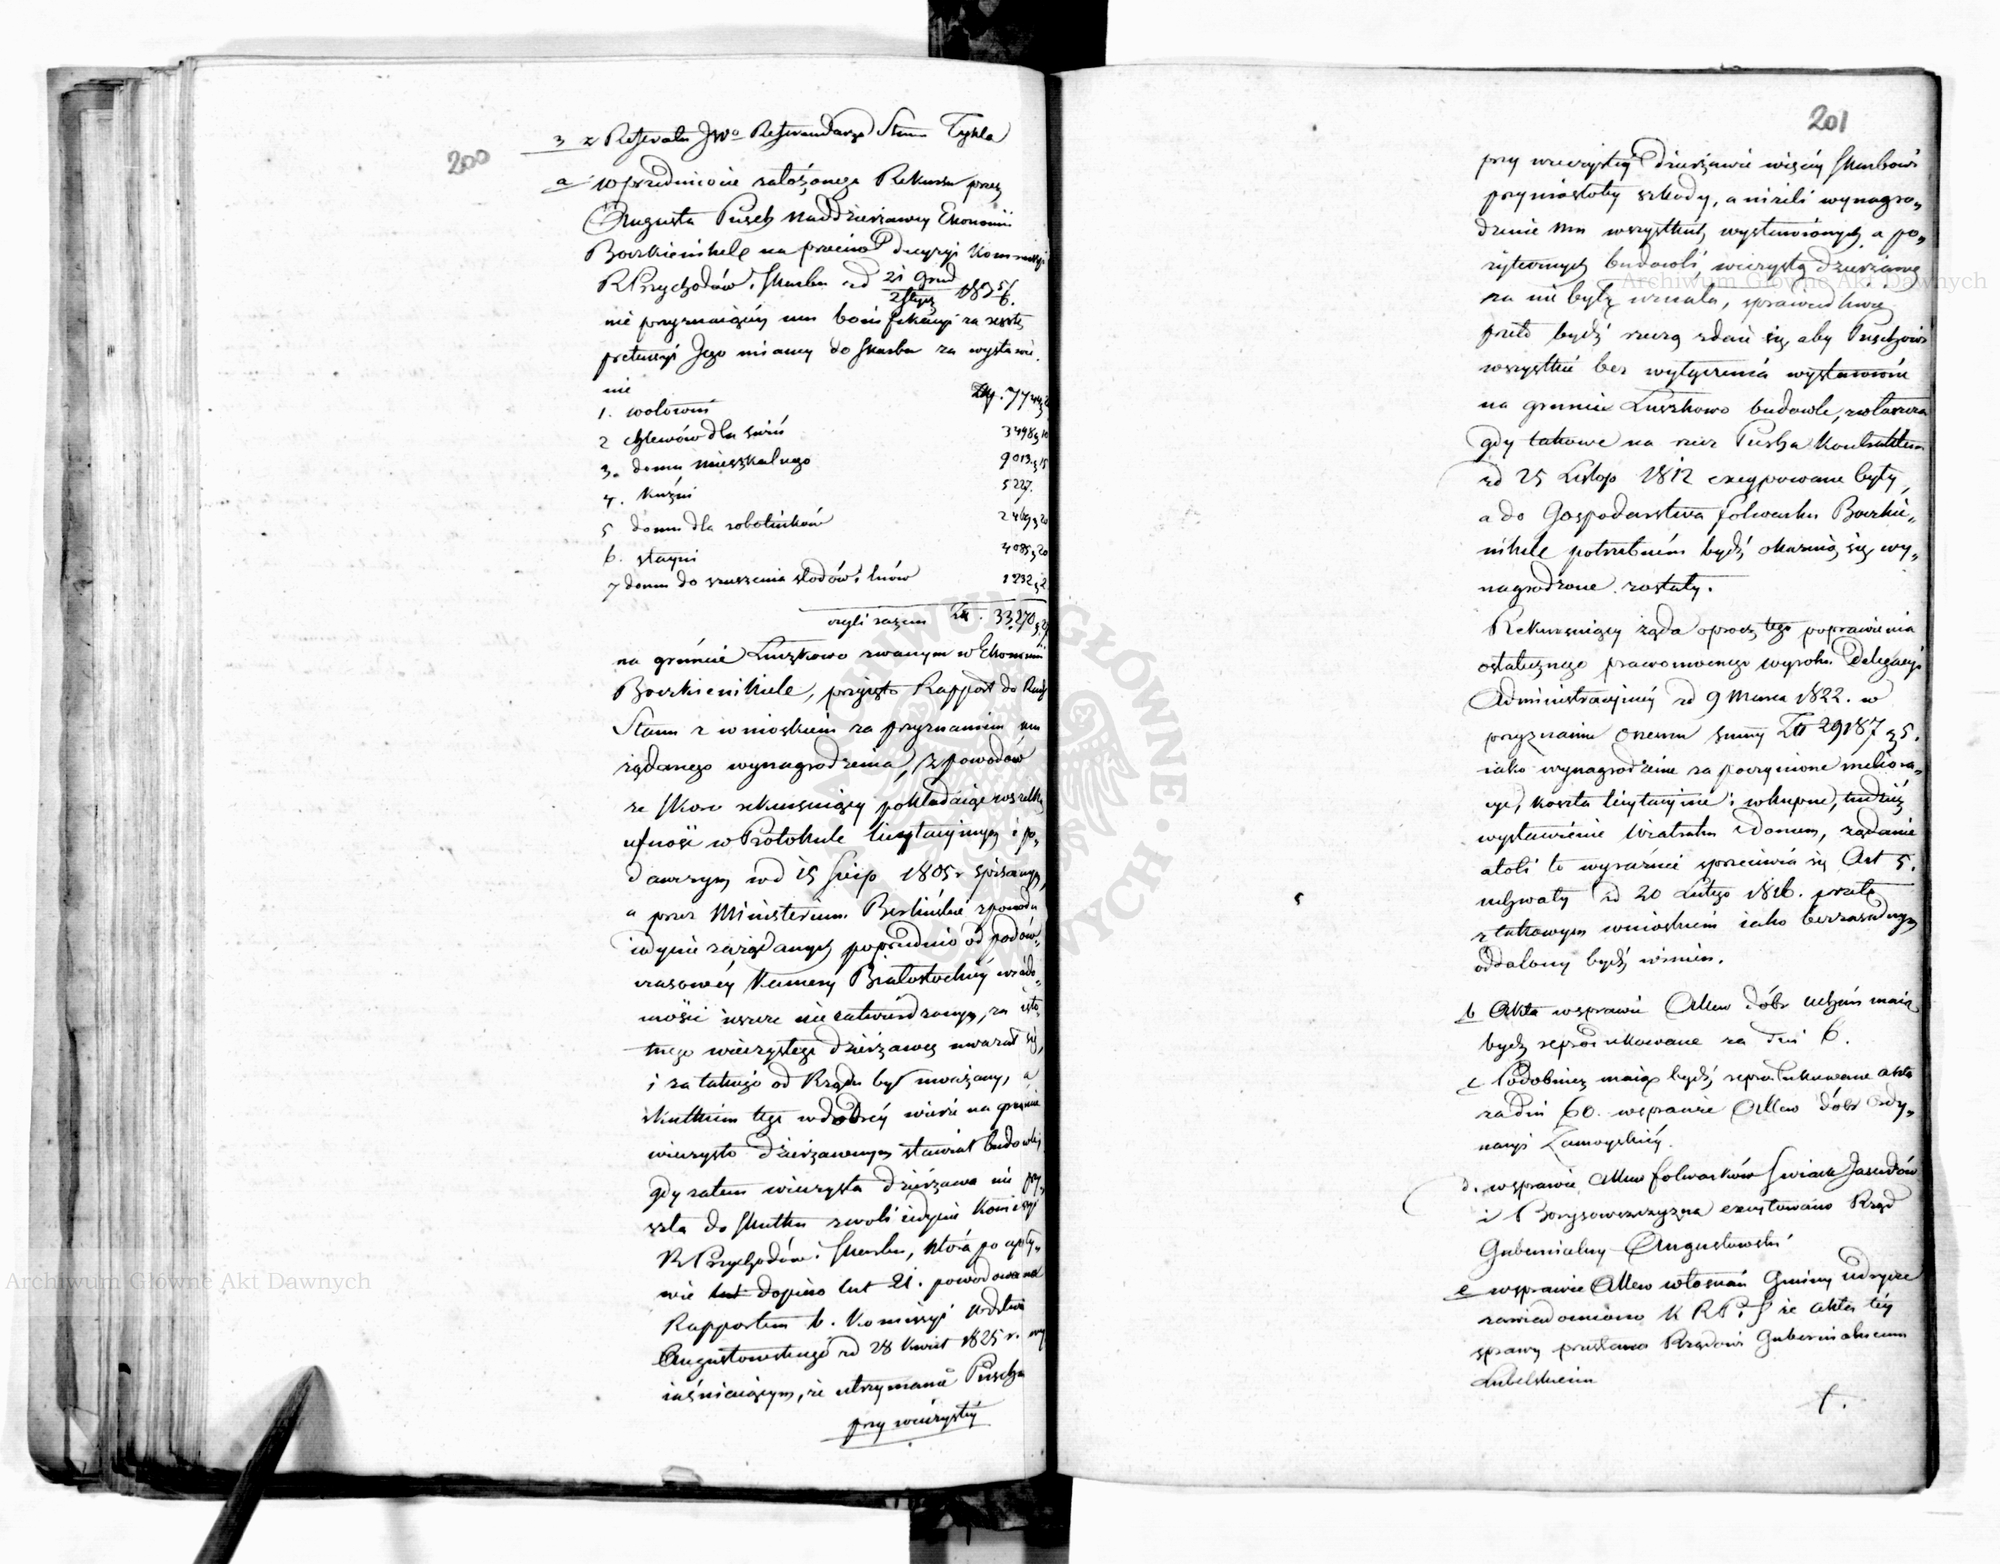 200
3 z Referatu JWo Referendarza Stanu Tykla
a w przedmiocie założonego Rekursu przez
Augusta Pusch Naddzierżawcy Ekonomii
Boczkinikele na przeciw decyzyi Kommissyi
R Przychodów i Skarbu od 21 Grud 1825/6.
2 Stycz
nie przyznaiącey mu bonifikacyi za resztę
pretensyi Jego mianey do Skarbu za wystawie,
nie
1. wołowni
2 chlewów dla świń 3498
3. domu mieszkalnego 9013
4. kuźni 5227.
5 domu dla robotników
6. stayni 4085
7 domu do suszenia słodów i lnów 1232
czyli razem Zł. 33,270
na gruncie Luszkowo zwanym w Ekonomii
Boczkienikele, przyięto Rapport do Rady
Stanu z wnioskiem za przyznaniem mu
żądanego wynagrodzenia, z powodów
że skoro rekursuiący pokładaiąc wszelką
ufność w Protokule licytacyinym i po,
dawczym od 15 Sierp 1805 r spisanym,
a przez Ministerium Berlińskie z powodu
iedynie zażądanych poprzednio od podów,
czasowéy Kamery Białostockiéy wiado,
mości ieszcze nie zatwierdzonym, za isto,
tnego wieczystego dzierżawcę uważał się,
i za takiego od Rządu był miany, a
skutkiem tego w dobréy wierze na gruncie
wieczysto dzierżawnym stawiał budowle,
gdy zatem wieczysta dzierżawa nie przy,
szła do skutku z woli iedynie Komissyi
R Przychodów i Skarbu, która po upły,
wie dopiero lat 21. powodowana
Rapportem b. Komissyi Wdztwa
Augustowskiego od 28 Kwiet 1825 r. wy
iaśniaiącym, że utrzymanie Puscha
przy wieczystéy
201
przy wieczystéy dzierżawie więcéy Skarbowi
przyniosłoby szkody, a niżeli wynagro,
dzenie mu wszystkich wystawionych a po,
żytecznych budowli, wieczystą dzierżawę
za nie byłą uznała, sprawiedliwą
przeto bydź rzeczą zdaie się, aby Puschowi
wszystkie bez wyłączenia wystawione
na gruncie Luszkowo budowle, zwłaszcza
gdy takowe na rzecz Puscha Kontraktem
od 25 Listop 1812 excypowane były,
a do Gospodarstwa folwarku Boczkie,
nikele potrzebnemi bydź okazuią się, wy,
nagrodzone zostały.
Rekursuiący żąda oprócz tego poprawienia
ostatecznego prawomocnego wyroku Delegacyi
Administracyinéy od 9 Marca 1822. w
przyznaniu onemu summy Zł 29187
iako wynagrodzenie za poczynione meliora,
cye, koszta licytacyine i wkupne, tudzież
wystawienie wiatraka i domu, żądanie
atoli to wyraźnie sprzeciwia się Art 5.
uchwały od 20 Lutego 1816. przeto
z takowym wnioskiem iako bezzasadnym
oddalony bydź winien.
b Akta w sprawie Allew dóbr Uchań maią
bydź reprodukowane za dni 6.
c Podobnież maią bydź reprodukowane akta
za dni 60. w sprawie Allew dóbr Ordy,
nacyi Zamoyskiéy.
d. w sprawie Allew folwarków Świack Jasudów
i Borysowszczyzna excytowano Rząd
Gubernialny Augustowski
e w sprawie Allew włościan Gminy Udrycze
zawiadomiono K R P i S że akta téy
sprawy przesłano Rządowi Gubernialnemu
Lubelskiemu
Archiwum Główne Akt Dawnych
Archiwum Główne Akt Dawnych